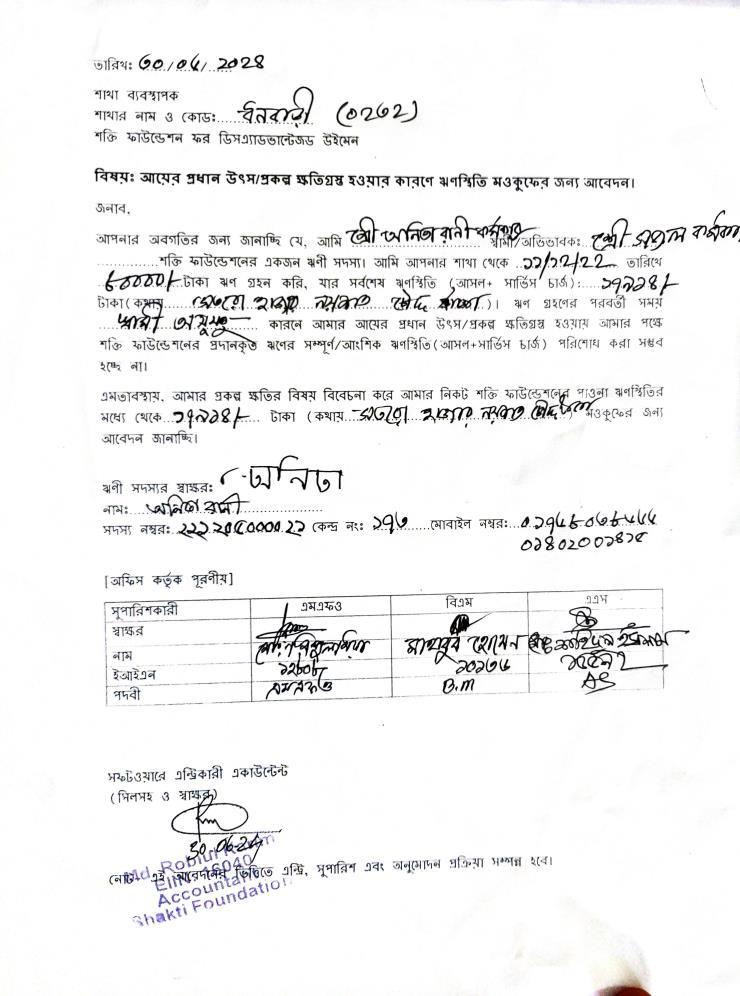 তারিখ: ৩০/০৬/২০২৪
শাখা ব্যবস্থাপক
শাখার নাম ও কোড: ধনবাড়ী (০২৩২)
শক্তি ফাউন্ডেশন ফর ডিসএ্যাডভান্টেজড উইমেন
বিষয়: আয়ের প্রধান উৎস/প্রকল্প ক্ষতিগ্রস্ত হওয়ার কারণে ঋণস্থিতি মওকুফের জন্য আবেদন।
জনাব,
আপনার অবগতির জন্য জানাচ্ছি যে, আমি শ্রী অনিতা রানী কর্মকার স্বামী/অভিভাবক: শ্রী কর্মকার
শক্তি ফাউন্ডেশনের একজন ঋণী সদস্য। আমি আপনার শাখা থেকে ১১/১২/২২ তারিখে
টাকা ঋণ গ্রহন করি, যার সর্বশেষ ঋণস্থিতি (আসল+ সার্ভিস চার্জ): ১৭৯১৪/-
টাকা (কথায় সতেরো হাজার নয়শত চৌদ্দ টাকা)। ঋণ গ্রহণের পরবর্তী সময়
স্বামী অসুস্থ কারনে আমার আয়ের প্রধান উৎস/প্রকল্প ক্ষতিগ্রস্ত হওয়ায় আমার পক্ষে
শক্তি ফাউন্ডেশনের প্রদানকৃত ঋণের সম্পূর্ণ/আংশিক ঋণস্থিতি (আসল+সার্ভিস চার্জ) পরিশোধ করা সম্ভব
হচ্ছে না।
এমতাবস্থায়, আমার প্রকল্প ক্ষতির বিষয় বিবেচনা করে আমার নিকট শক্তি ফাউন্ডেশনের পাওনা ঋণস্থিতির
মধ্যে থেকে ১৭৯১৪/- টাকা (কথায় সতেরো হাজার নয়শত চৌদ্দ টাকা) মওকুফের জন্য
আবেদন জানাচ্ছি।
ঋণী সদস্যর স্বাক্ষর: অনিতা
নাম: অনিতা রানী
সদস্য নম্বর: কেন্দ্র নং: ১৭৬ মোবাইল নম্বর:
[অফিস কর্তৃক পূরণীয়]
সুপারিশকারী এমএফও বিএম এএস
স্বাক্ষর
নাম মাহবুব হোসেন
ইআইএন
পদবী এমএফও B.M AS
সফটওয়ারে এন্ট্রিকারী একাউন্টেন্ট
(সিলসহ ও স্বাক্ষর)
30.06.24
Md. Robiul Karim
EIN: 16040
Accountant
Shakti Foundation
নোট: এই আবেদনের ভিত্তিতে এন্ট্রি, সুপারিশ এবং অনুমোদন প্রক্রিয়া সম্পন্ন হবে।